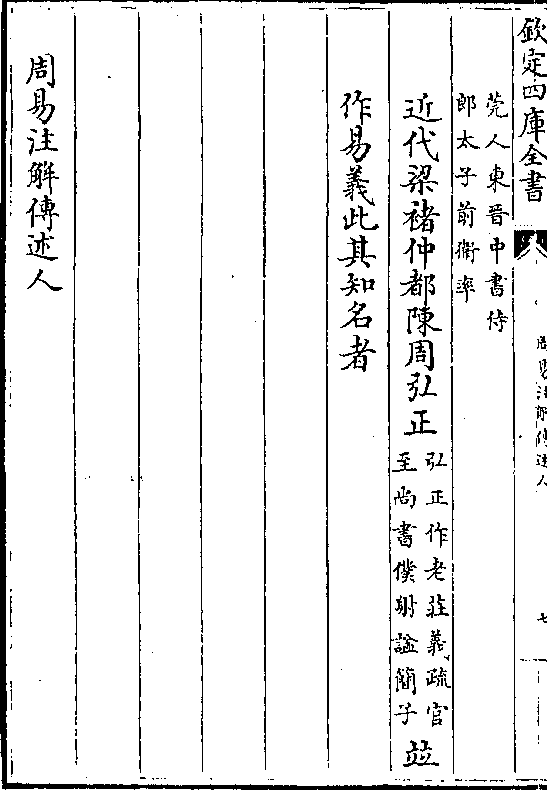 欽定四庫全書
周易注解傳述人
七
莞人東晉中書侍
郎太子前衛率
近代梁褚仲都陳周弘正弘正作老莊義疏官
至尚書僕射諡簡子並
作易義此其知名者
周易注解傳述人